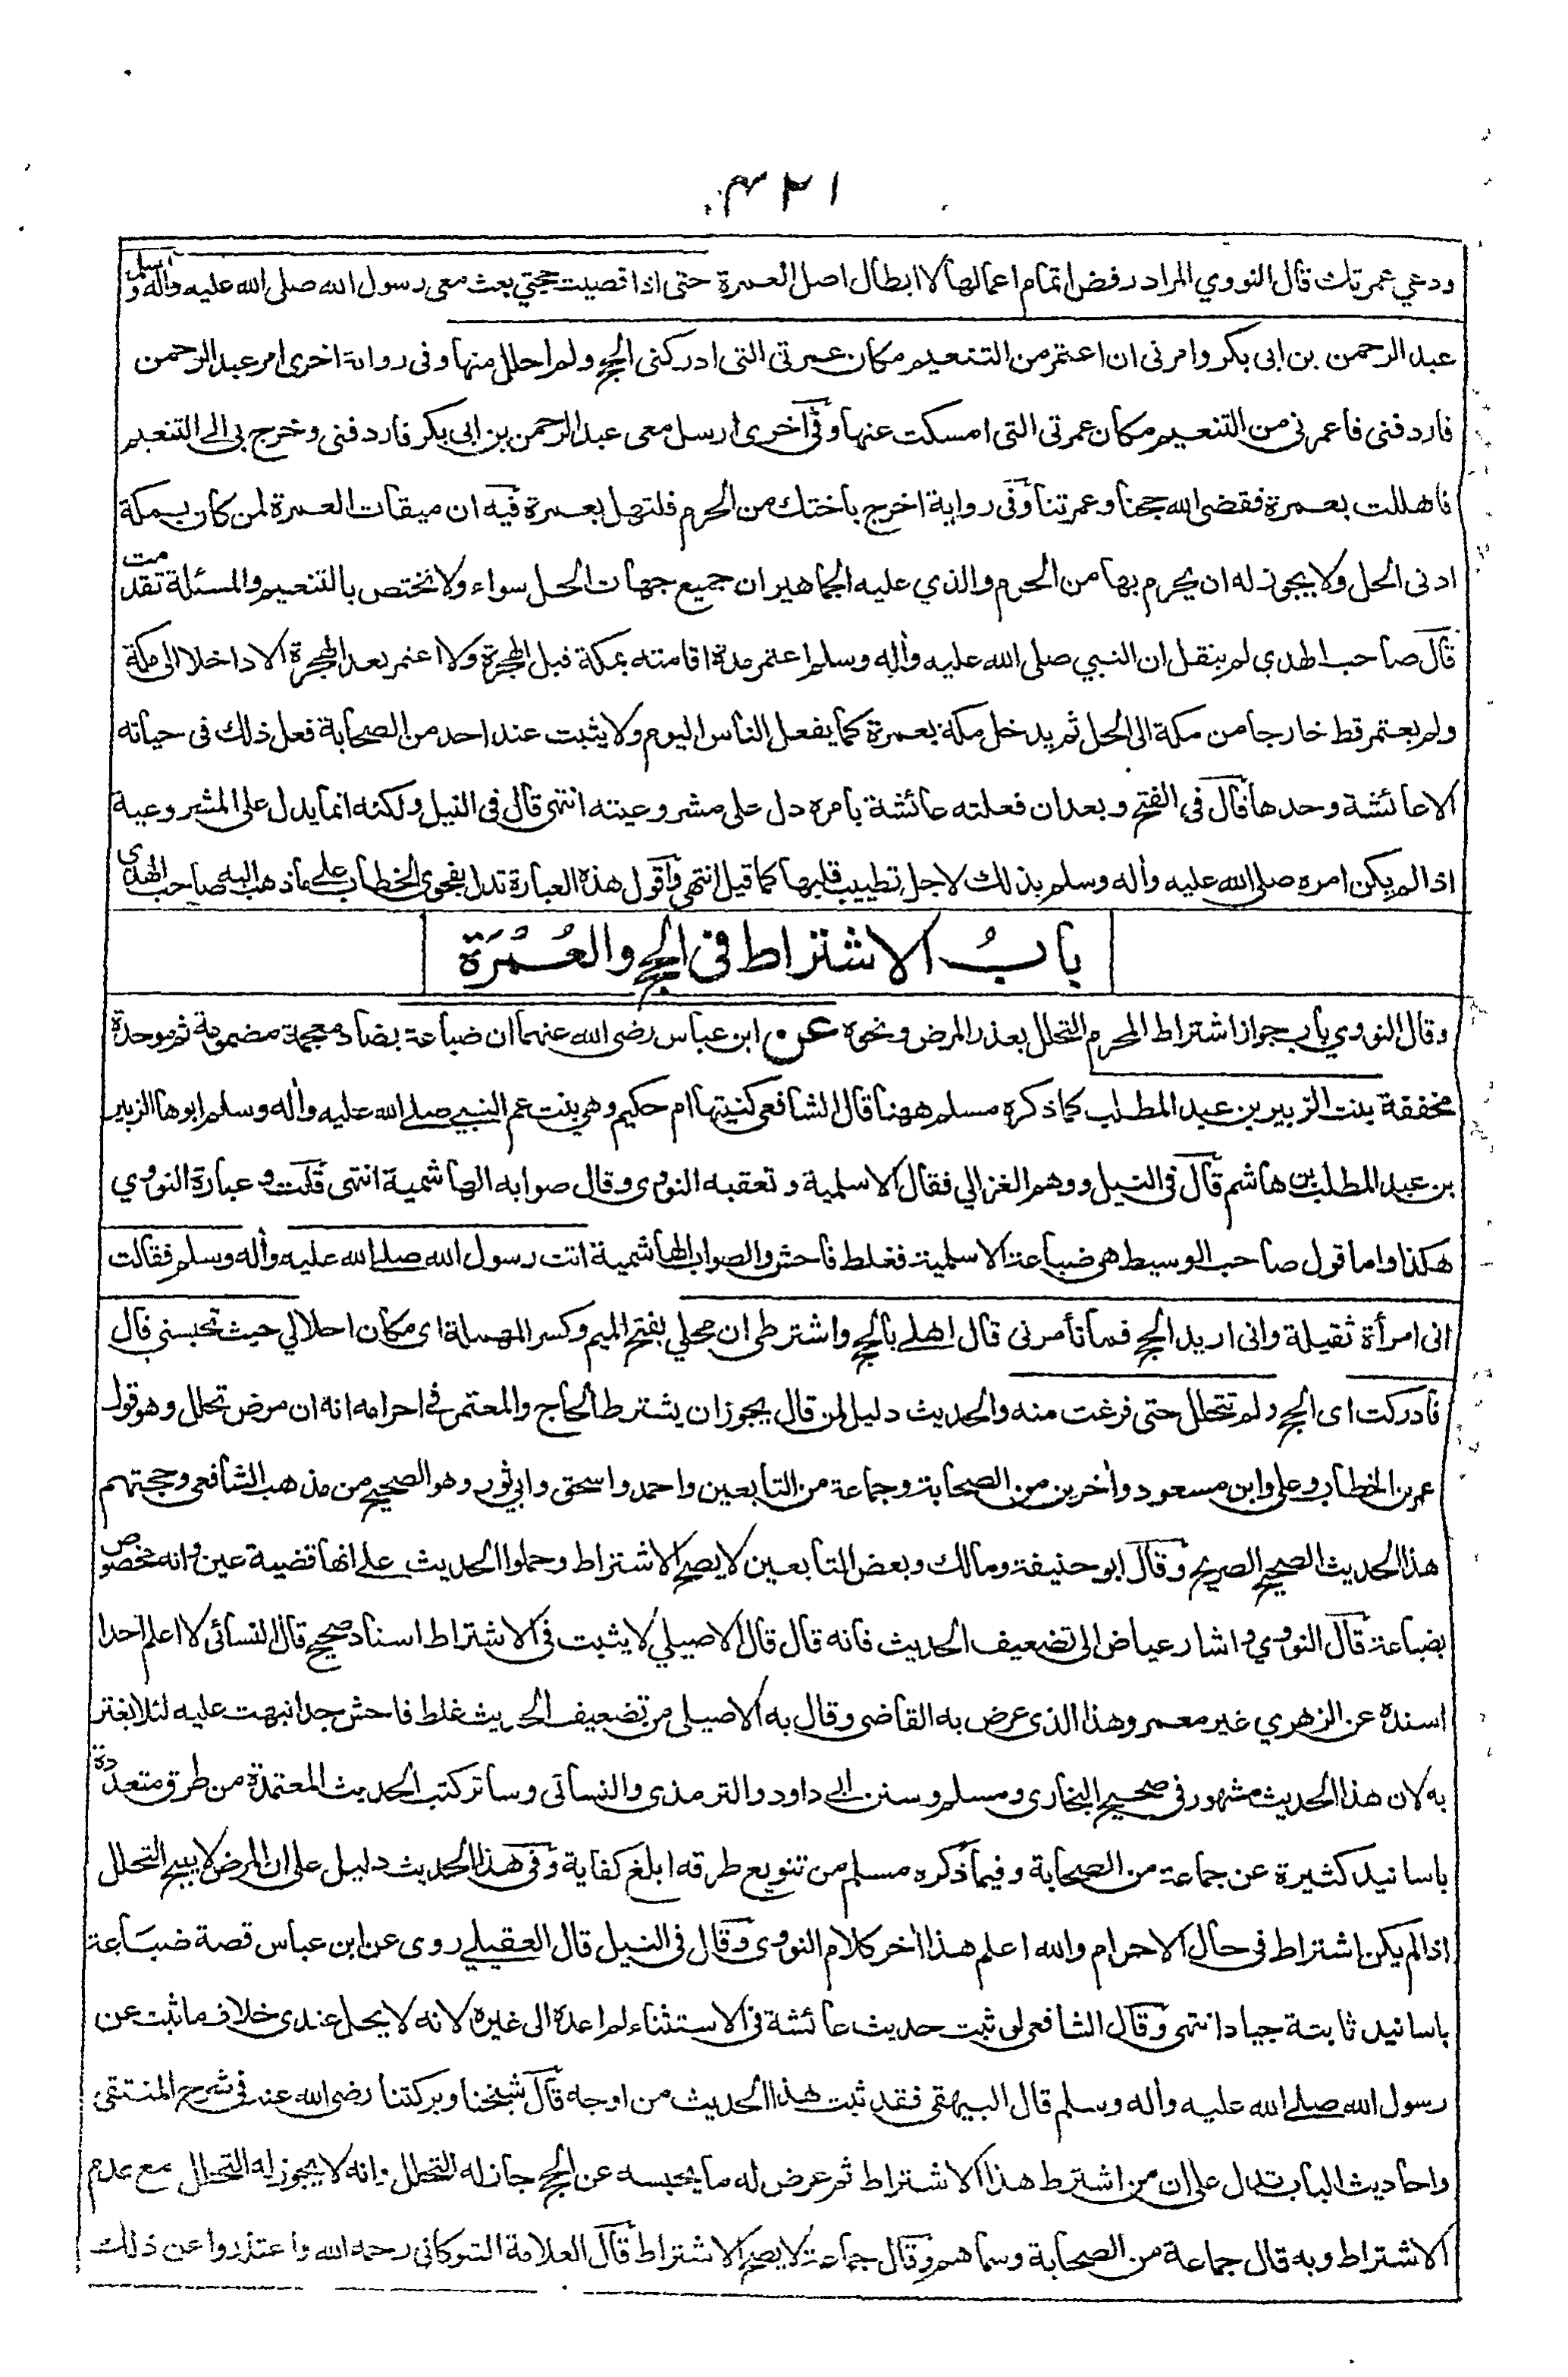 ٤٢١
ودعي عمرتك قال النووي المراد رفض اتمام اعمالها لا ابطال اصل العمرة حتى اذا قضيت حجتي بعث معى رسول الله صلى الله عليه واله وسلم
عبد الرحمن بن ابى بكر وامرنى ان اعتمر من التنعيم مكان عمرتى التى ادركنى الحج ولم احلل منها وفى رواية اخرى امر عبد الرحمن
فاردفنى فاعمرنى من التنعيم مكان عمرتى التى امسكت عنها وفى اخرى ارسل معى عبد الرحمن بن ابى بكر فاردفنى وخرج بى الى التنعيم
فاهللت بعمرة فقضى الله حجنا وعمرتنا وفى رواية اخرج باختك من الحرم فلتهل بعمرة فيه ان ميقات العمرة لمن كان بمكة
ادنى الحل ولا يجوز له ان يحرم بها من الحرم والذي عليه الجماهير ان جميع جهات الحل سواء ولا تختص بالتنعيم والمسئلة تقدمت
قال صاحب الهدي لم ينقل ان النبي صلى الله عليه وأله وسلم اعتمر مدة اقامته بمكة قبل الهجرة ولا اعتمر بعد الهجرة الا داخلا الى مكة
ولم يعتمر قط خارجا من مكة الى الحل ثم يدخل مكة بعمرة كما يفعل الناس اليوم ولا يثبت عند احد من الصحابة فعل ذلك فى حياته
الا عائشة وحدها قال فى الفتح وبعد ان فعلته عائشة بامره دل على مشروعيته انتهى قال فى النيل ولكنه انما يدل على المشروعية
اذا لم يكن امره صلى الله عليه وأله وسلم بذلك لاجل تطييب قلبها كما قيل انتهى واقول هذه العبارة تدل بفحوى الخطاب على ما ذهب اليه صاحب الهدى
بابُ الاشتراط فى الحج والعُمْرَة
وقال النووي باب جواز اشتراط المحرم التحلل بعذر المرض ونحوه عن ابن عباس رضى الله عنهما ان ضباعة بضاد معجمة مضمومة ثم موحدة
مخففة بنت الزبير بن عبد المطلب كما ذكره مسلم ههنا قال الشافعى كنيتها ام حكيم وهي بنت عم النبي صلى الله عليه وأله وسلم ابوها الزبير
بن عبد المطلب بن هاشم قال فى النيل ووهم الغزالي فقال الاسلمية وتعقبه النووى وقال صوابه الهاشمية انتهى قلت وعبارة النووي
هكذا واما قول صاحب الوسيط هى ضباعة الاسلمية فغلط فاحش والصواب الهاشمية اتت رسول الله صلى الله عليه وأله وسلم فقالت
انى امرأة ثقيلة وانى اريد الحج فما تأمرنى قال اهلى بالحج واشترطى ان محلي بفتح الميم وكسر المهملة اى مكان احلالي حيث تحبسنى قال
فادركت اى الحج ولم تتحلل حتى فرغت منه والحديث دليل لمن قال يجوز ان يشترط الحاج والمعتمر فى احرامه انه ان مرض تحلل وهو قول
عمر بن الخطاب وعلى وابن مسعود وأخرين من الصحابة وجماعة من التابعين واحمد واسحق وابي ثور وهو الصحيح من مذهب الشافعى وحجتهم
هذا الحديث الصحيح الصريح وقال ابو حنيفة ومالك وبعض التابعين لا يصح الاشتراط وحملوا الحديث على انها قضية عين وانه مخصوص
بضباعة قال النووي واشار عياض الى تضعيف الحديث فانه قال قال الاصيلي لا يثبت فى الاشتراط اسناد صحيح قال النسائى لا اعلم احدا
اسنده عن الزهري غير معمر وهذا الذى عرض به القاضى وقال به الاصيلى من تضعيف الحديث غلط فاحش جدا نبهت عليه لئلا يغتر
به لان هذا الحديث مشهور فى صحيح البخارى ومسلم وسنن ابى داود والترمذى والنسائى وسائر كتب الحديث المعتمدة من طرق متعددة
باسانيد كثيرة عن جماعة من الصحابة وفيما ذكره مسلم من تنويع طرقه ابلغ كفاية وفى هذا الحديث دليل على ان المرض لا يبيح التحلل
اذا لم يكن اشتراط فى حال الاحرام والله اعلم هذا اخر كلام النووى وقال فى النيل قال العقيلى روى عن ابن عباس قصة ضباعة
باسانيد ثابتة جياد انتهى وقال الشافعى لو ثبت حديث عائشة فى الاستثناء لم اعده الى غيره لانه لا يحل عندى خلاف ما ثبت عن
رسول الله صلى الله عليه وأله وسلم قال البيهقى فقد ثبت هذا الحديث من اوجه قال شيخنا وبركتنا رضى الله عنه فى شرح المنتقى
واحاديث الباب تدل على ان من اشترط هذا الاشتراط ثم عرض له ما يحبسه عن الحج جاز له التحلل وانه لا يجوز له التحلل مع عدم
الاشتراط وبه قال جماعة من الصحابة وسماهم وقال جماعة لا يصح الاشتراط قال العلامة الشوكانى رحمه الله واعتذروا عن ذلك